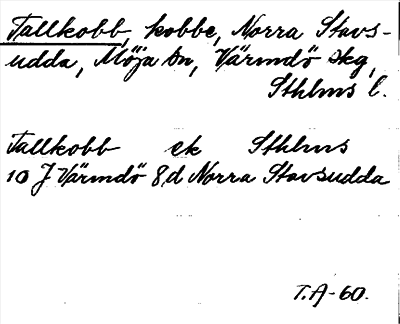 Tallkobb, kobbe, Norra Stavs-
udda, Möja sn, Värmdö skg,
Sthlms l.
Tallkobb ek Sthlms
10 J Värmdö 8d Norra Stavsudda
T.A-60.